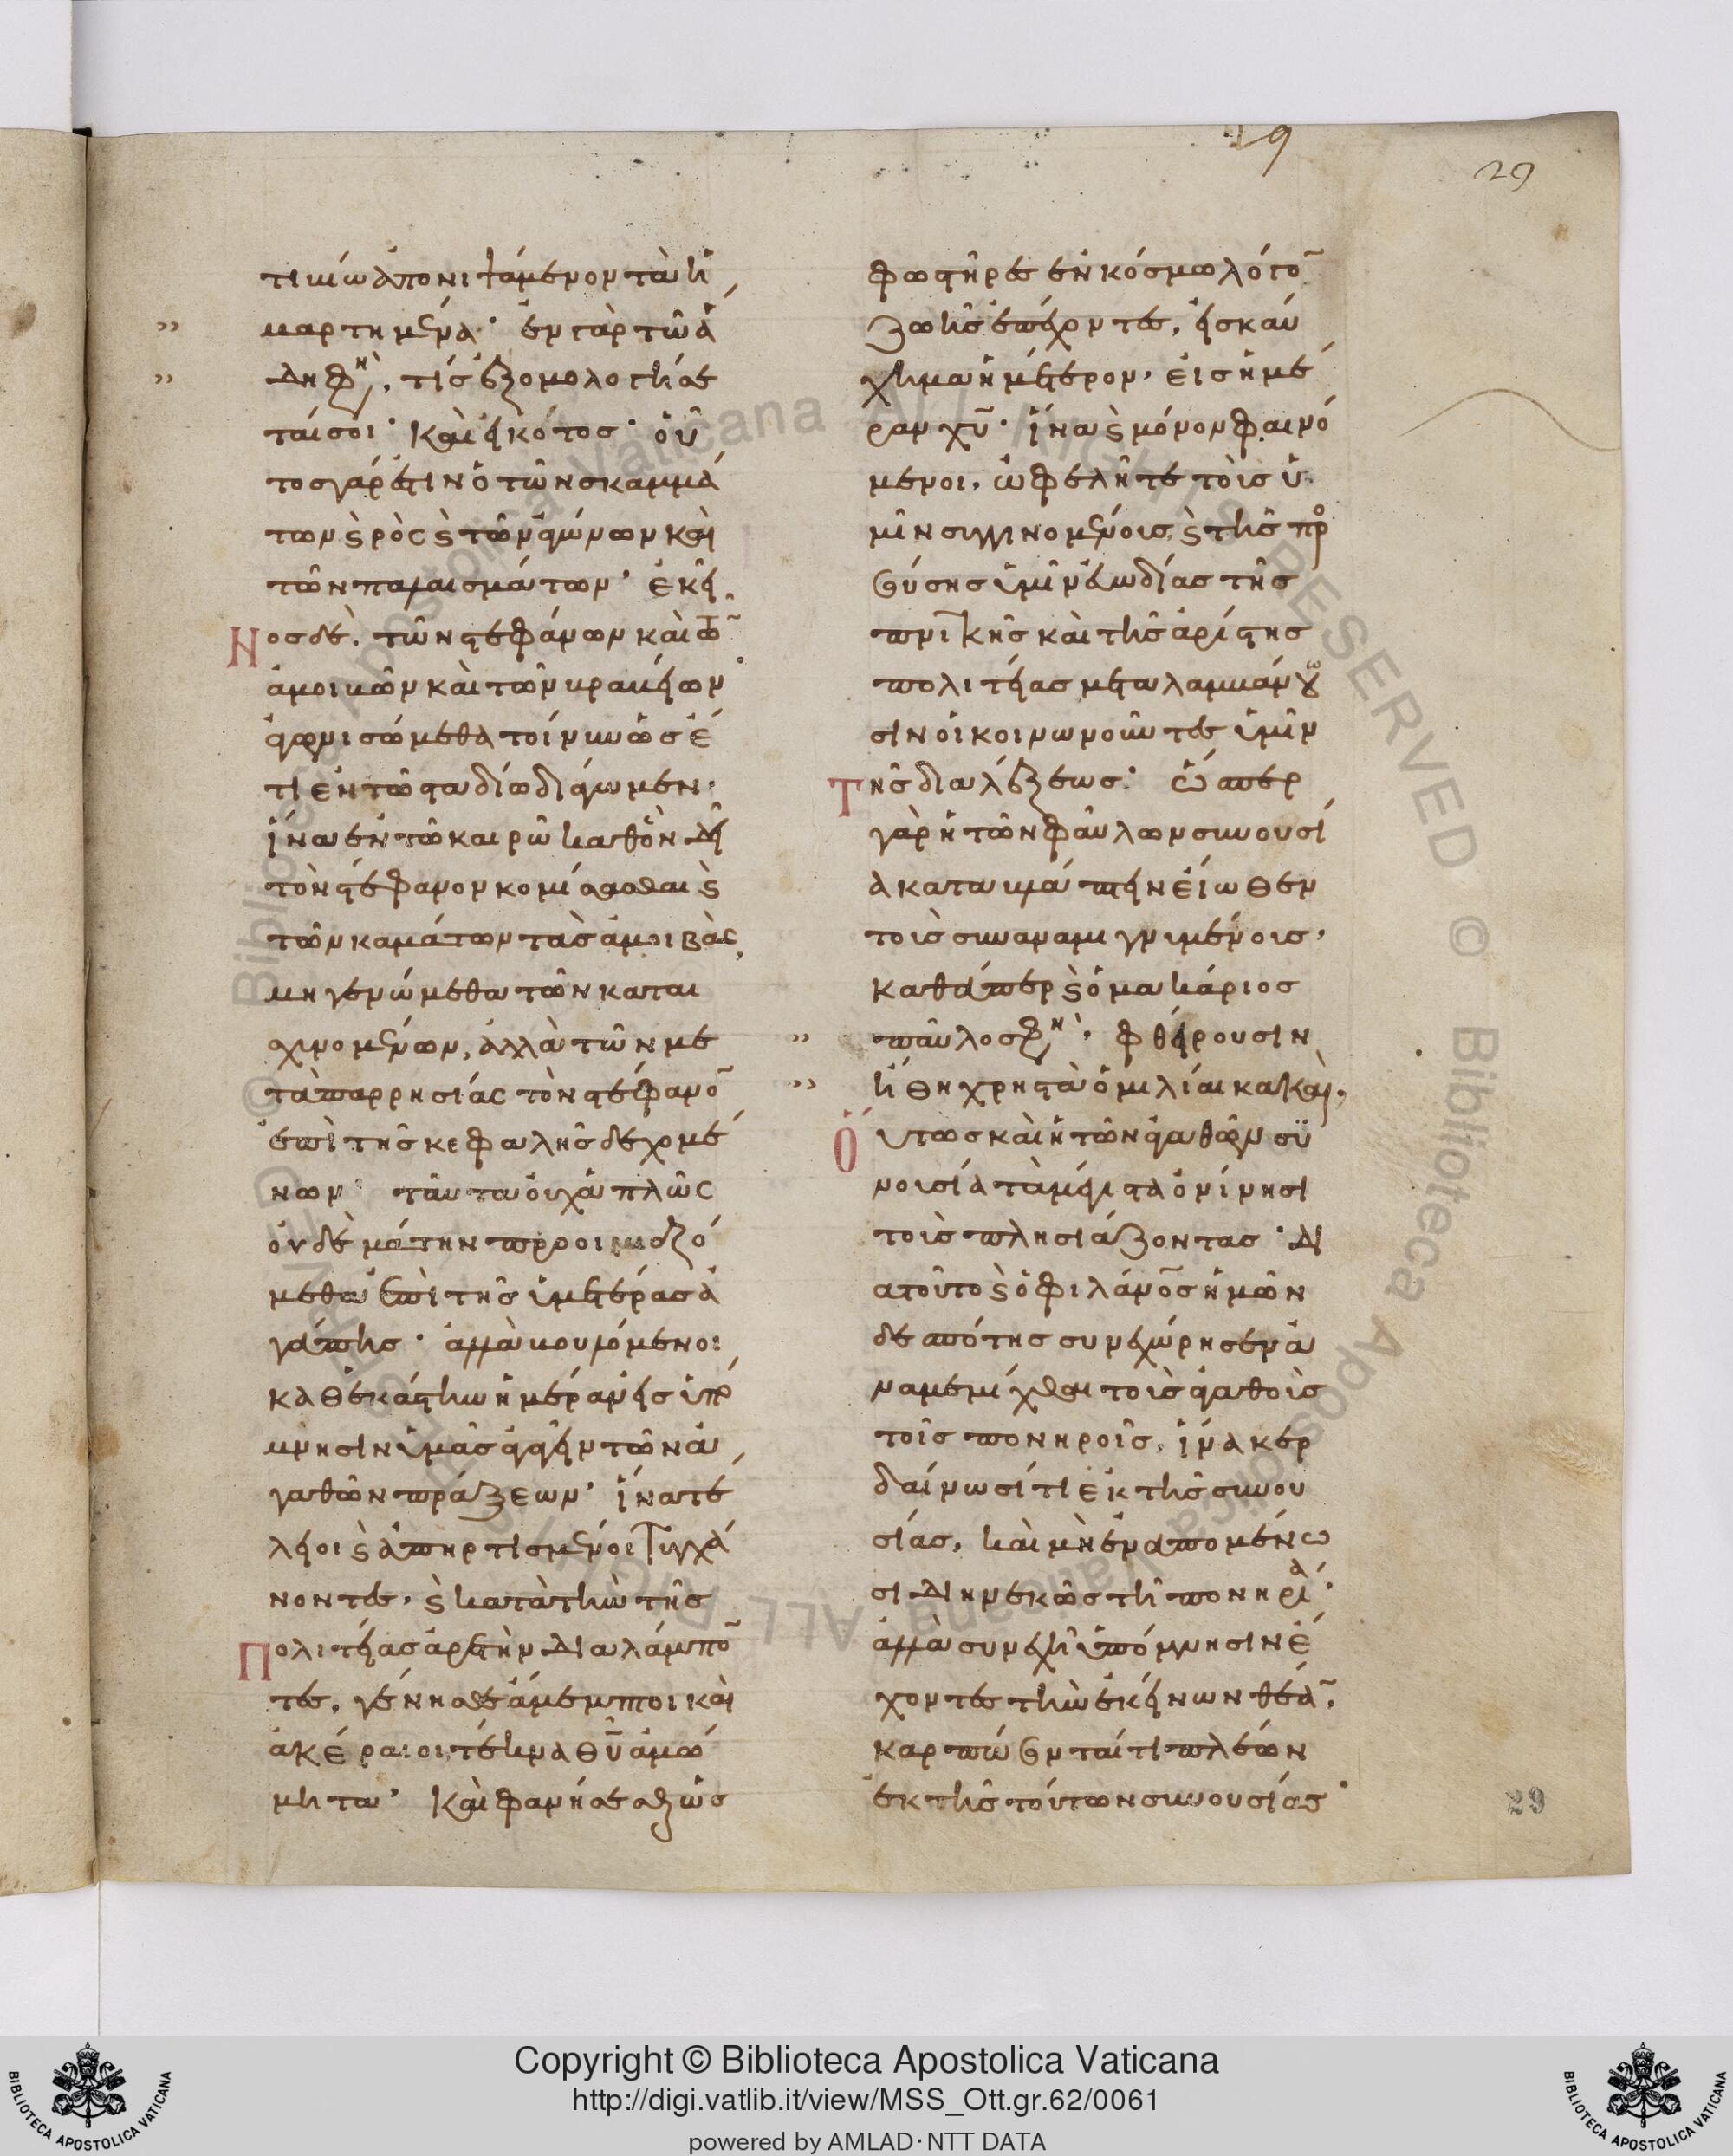 29
29
τινίω ἀπονιψάμενον τὰ ἡ
μαρτημένα· ἐν γὰρ τῶ ἅ
δη φησὶ, τίς ἐξομολογήσε
ταί σοι· καὶ εἰκότος· οὗ
τος γάρ ἐστιν ὁ τῶν σκαμμά
των καιρὸς καὶ τῶν ἀγώνων καὶ
τῶν παλαισμάτων· ἐκεῖ
νος δὲ, τῶν στεφάνων καὶ τῶν
ἀμοιβῶν καὶ τῶν βραβείων·
ἀγωνισώμεθα τοίνυν ὡς ἔ
τι ἐν τῶ σταδίω διάγωμεν·
ἵνα ἐν τῶ καιρῶ καθ' ὃν δεῖ
τὸν στέφανον κομίσασθαι καὶ
τῶν καμάτων τὰς ἀμοιβὰς,
μὴ γενώμεθα τῶν καται
σχυνομένων, ἀλλὰ τῶν με
τὰ παρρησίας τὸν στέφανον
ἐπὶ τῆς κεφαλῆς δεχομέ
νων· ταῦτα οὐχ ἁπλῶς
οὐδὲ μάτην προοιμιαζό
μεθα ἐπὶ τῆς ὑμετέρας ἀ
γάπης· ἀλλὰ βουλόμενοι
καθ' ἑκάστην ἡμέραν εἰς ὑπό
μνησιν ὑμᾶς ἄγειν τῶν ἀ
γαθῶν πράξεων· ἵνα τέ
λειοι καὶ ἀπηρτισμένοι τυγχά
νοντες, καὶ κατὰ τὴν τῆς
πολιτείας ἀρετὴν διαλάμπον
τες, γένησθε ἄμεμπτοι καὶ
ἀκέραιοι, τέκνα θῡ ἀμώ
μητα· καὶ φανήσεσθε ὡς
φωστῆρες ἐν κόσμω λόγον
ζωῆς ἐπέχοντες, εἰς καύ
χημα ἡμέτερον, εἰς ἡμέ
ραν χῡ· ἵνα καὶ μόνον φαινό
μενοι, ὠφελῆτε τοὺς ὑ
μῖν συγγινομένους, καὶ τῆς προ
σούσης ὑμῖν εὐωδίας τῆς
πνικῆς καὶ τῆς ἀρίστης
πολιτείας μεταλαμβάνου
σιν οἱ κοινωνοῦντες ὑμῖν
τῆς διαλέξεως· ὥσπερ
γὰρ ἡ τῶν φαύλων συνουσί
α καταβλάπτειν εἴωθεν
τοὺς συναναμιγνυμένους,
καθάπερ καὶ ὁ μακάριος
παῦλος φησὶ, φθείρουσιν
ἤθη χρηστὰ ὁμιλίαι κακαί·
οὕτως καὶ ἡ τῶν ἀγαθῶν συ
νουσία τὰ μέγιστα ὀνίνησι
τοὺς πλησιάζοντας· δι
α τοῦτο καὶ ὁ φιλάνος ἡμῶν
δεσπότης συνεχώρησεν ἀ
ναμεμίχθαι τοῖς ἀγαθοῖς
τοὺς πονηροὺς, ἵνα κερ
δαίνωσί τι ἐκ τῆς συνου
σίας, καὶ μὴ ἐναπομένω
σι διηνεκῶς τῇ πονηρίᾳ·
ἀλλὰ συνεχῆ ὑπόμνησιν ἔ
χοντες τὴν ἐκείνων θέαν,
καρπώσωνταί τι πλέων
ἐκ τῆς τούτων συνουσίας·
29
© Biblioteca Apostolica Vaticana ALL RIGHTS RESERVED
Copyright © Biblioteca Apostolica Vaticana
http://digi.vatlib.it/view/MSS_Ott.gr.62/0061
powered by AMLAD·NTT DATA
BIBLIOTECA APOSTOLICA VATICANA
BIBLIOTECA APOSTOLICA VATICANA